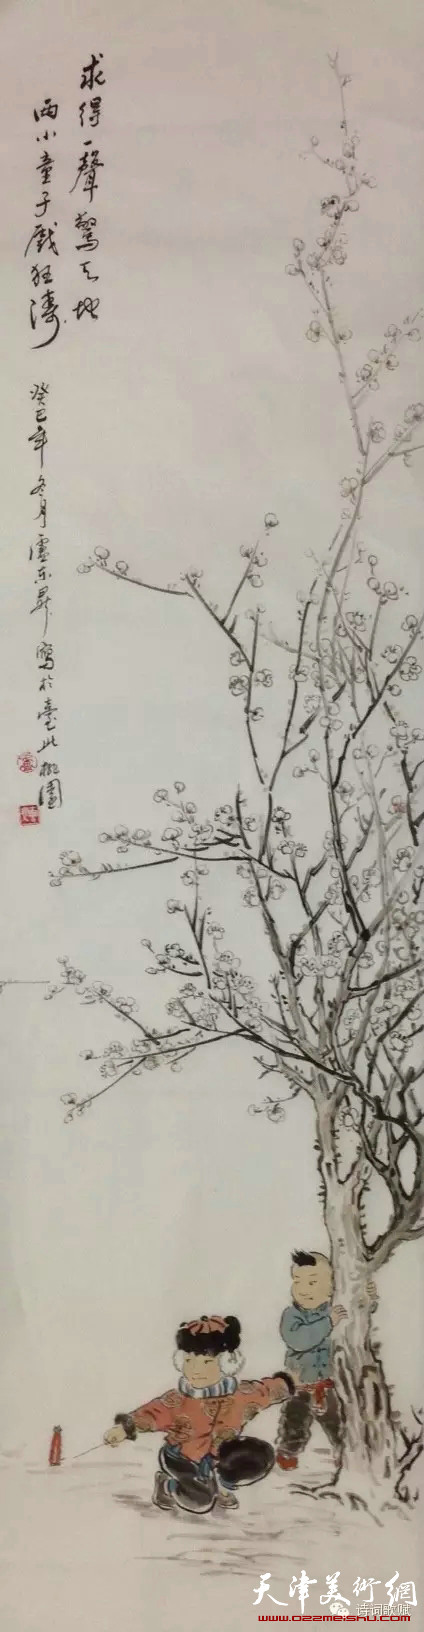 求得一聲驚天地
両小童子戲狂濤
癸巳年冬月盧東昇寫於臺北桃園
天津美術網
诗词歌赋
www.022meishu.com